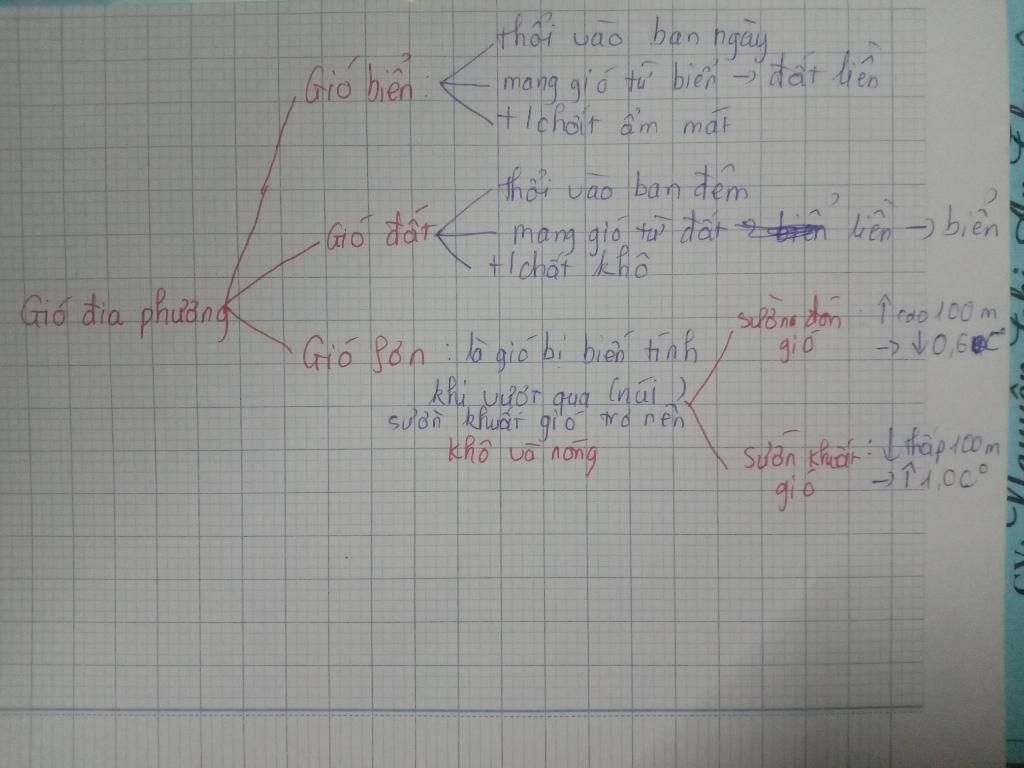 thổi vào ban ngày
Gió biển : mang gió từ biển → đất liền
+/chất ẩm mát
thổi vào ban đêm
Gió đất mang gió từ đất liền → biển
+/chất khô
Gió địa phương
Gió fơn : là gió bị biến tính
khi vượt qua (núi)
sườn khuất gió trở nên
khô và nóng
sườn đón gió : ↑ cao 100 m
→ ↓ 0,6 C°
sườn khuất gió : ↓ thấp 100 m
→ ↑ 1,0C°